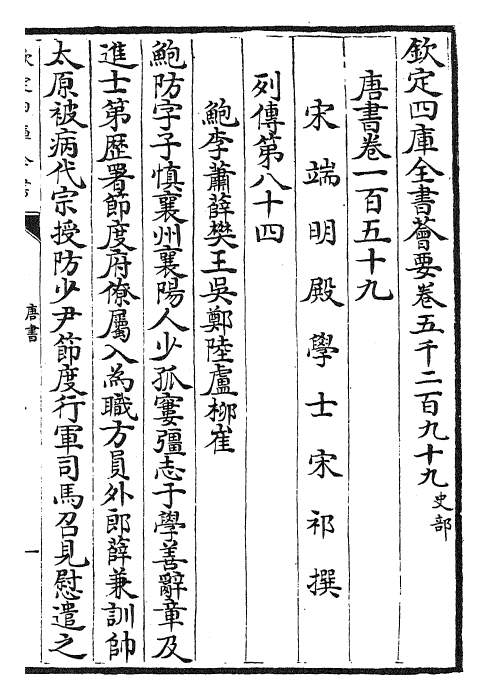 欽定四庫全書薈要卷五千二百九十九史部
唐書卷一百五十九
宋端明殿學士宋祁撰
列傳第八十四
鮑李蕭薛樊王吳鄭陸盧柳崔
鮑防字子慎襄州襄陽人少孤寠彊志于學善辭章及
進士第歷署節度府僚屬入為職方員外郎薛兼訓帥
太原被病代宗授防少尹節度行軍司馬召見慰遣之
唐書
一